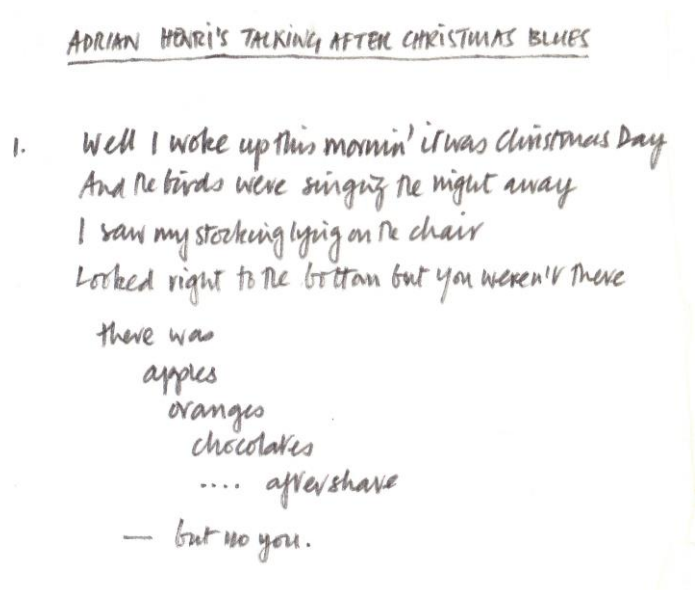 ADRIAN HENRI'S TALKING AFTER CHRISTMAS BLUES
1. Well I woke up this mornin' it was Christmas Day
And the birds were singing the night away
I saw my stocking lying on the chair
Looked right to the bottom but you weren't there
there was
apples
oranges
chocolates
.... aftershave
— but no you.